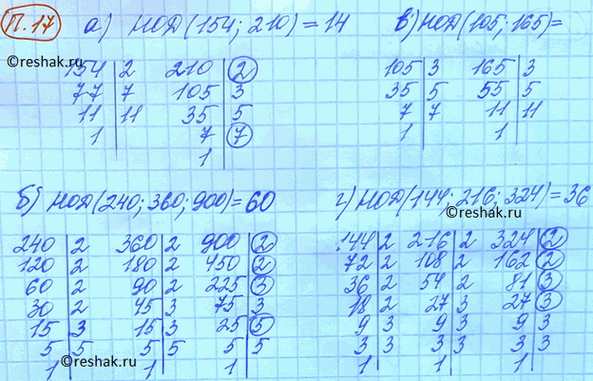 П.17
а) НОД(154; 210)=14
154 | 2 210 | 2
77 | 7 105 | 3
11 | 11 35 | 5
1 | 7 | 7
1
в) НОД(105; 165)=
105 | 3 165 | 3
35 | 5 55 | 5
7 | 7 11 | 11
1 | 1
б) НОД(240; 360; 900)=60
240 | 2 360 | 2 900 | 2
120 | 2 180 | 2 450 | 2
60 | 2 90 | 2 225 | 3
30 | 2 45 | 3 75 | 3
15 | 3 15 | 3 25 | 5
5 | 5 5 | 5 5 | 5
1 | 1 | 1
г) НОД(144; 216; 324)=36
144 | 2 216 | 2 324 | 2
72 | 2 108 | 2 162 | 2
36 | 2 54 | 2 81 | 3
18 | 2 27 | 3 27 | 3
9 | 3 9 | 3 9 | 3
3 | 3 3 | 3 3 | 3
1 | 1 | 1
©reshak.ru
©reshak.ru
©reshak.ru
©reshak.ru